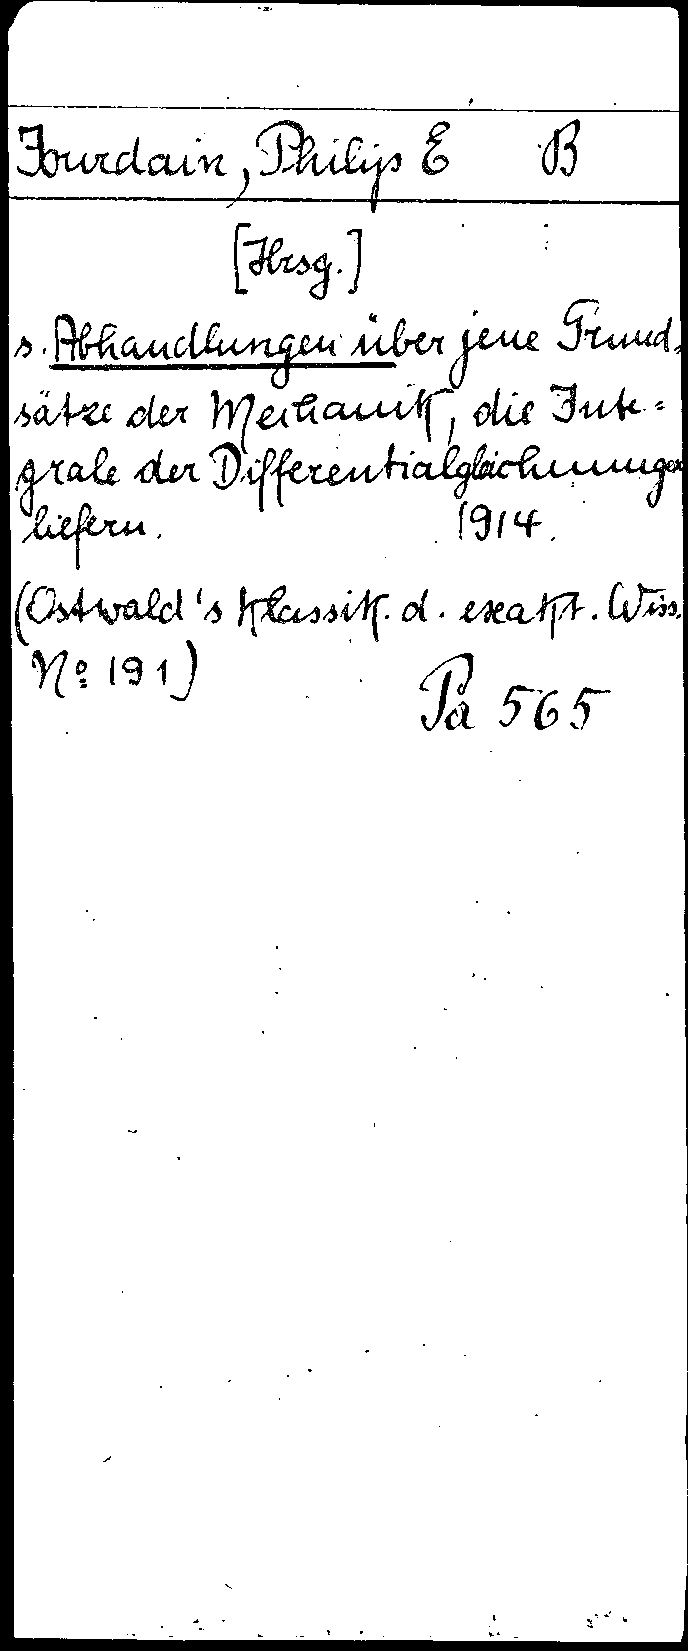 Jourdain, Philip E B
[Hrsg.]
s. Abhandlungen über jene Grund-
sätze der Mechanik, die Inte=
grale der Differentialgleichnungen
liefern. 1914.
(Ostwald's Klassik. d. exakt. Wiss.
No 191)
Pa 565